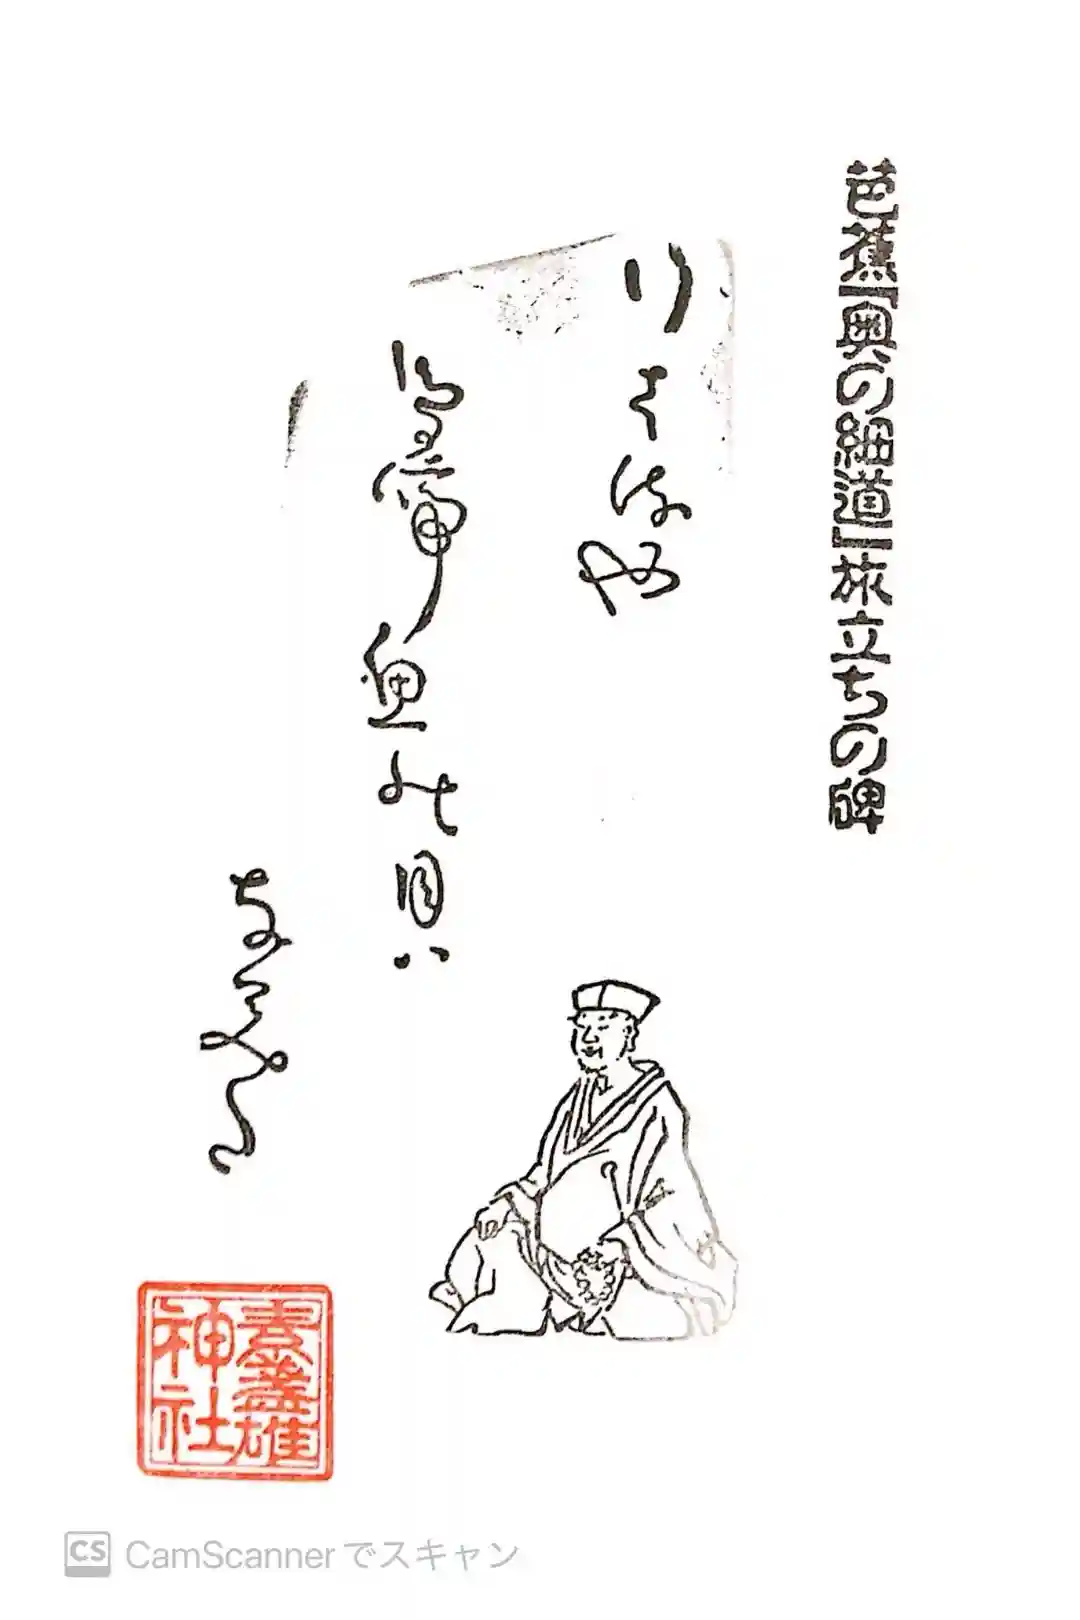 芭蕉「奥の細道」旅立ちの碑
行はるや
鳥啼魚の目ハ
なみた
素盞雄
神社
CS CamScanner でスキャン